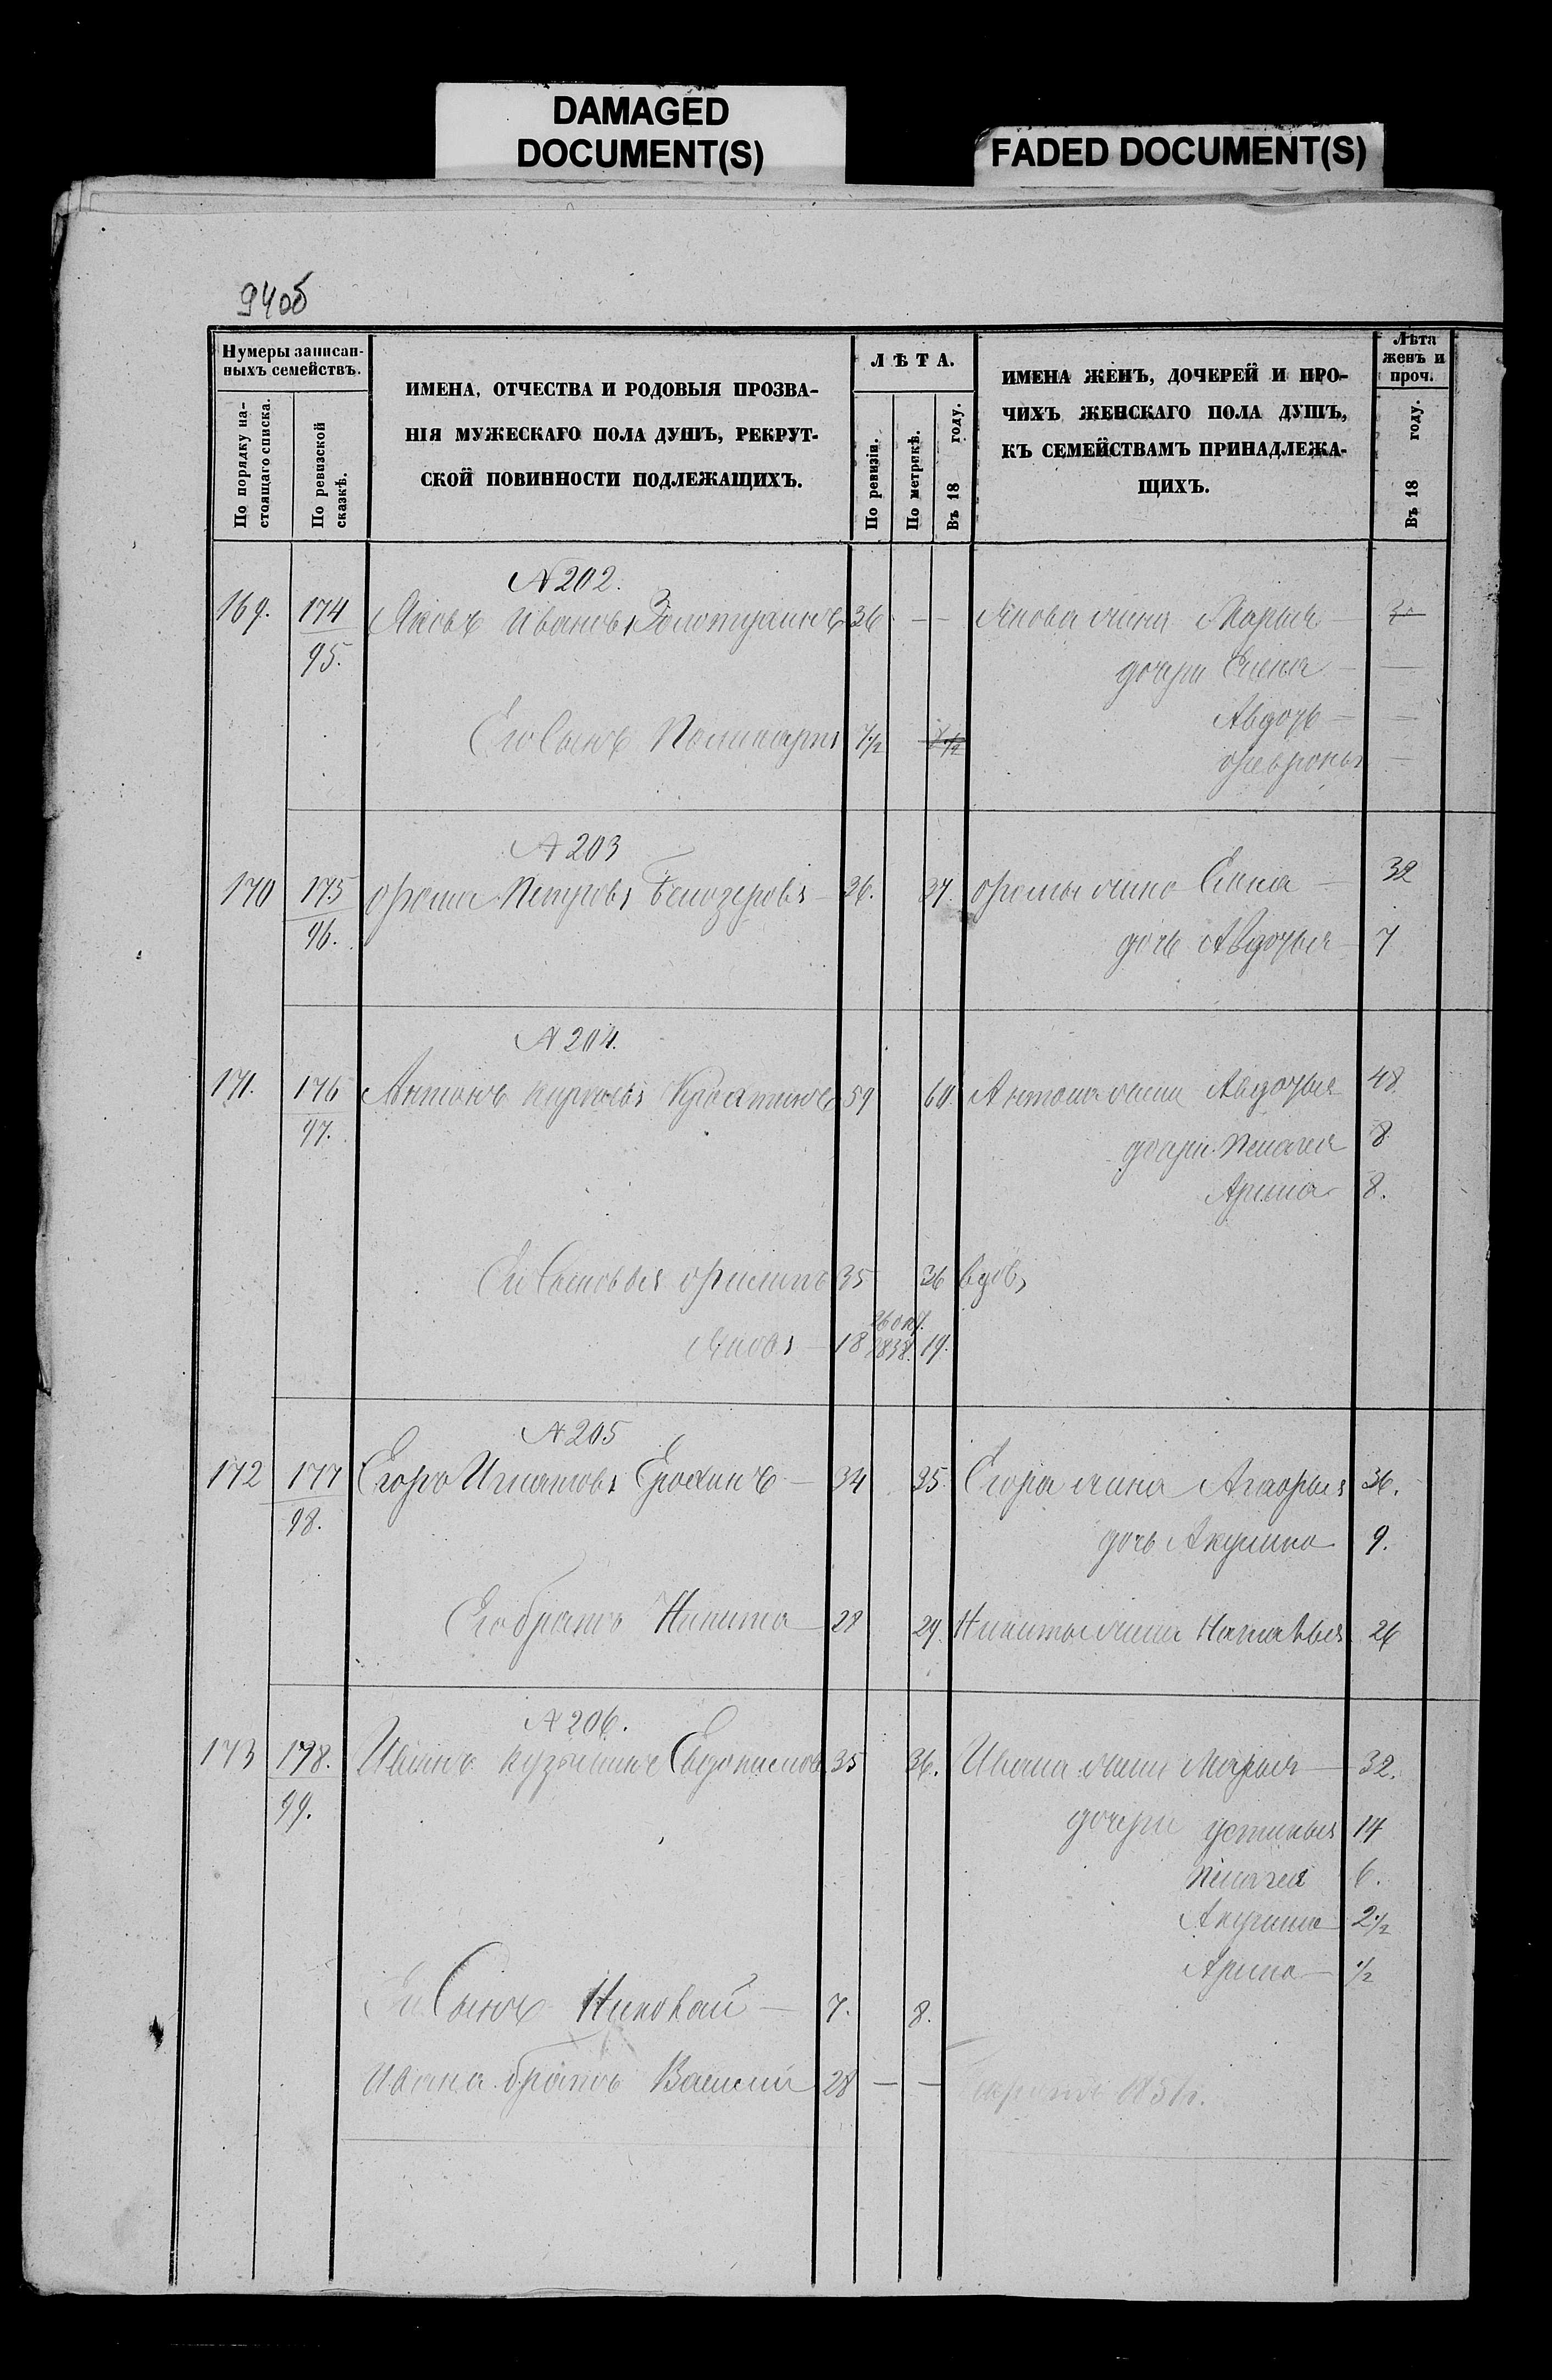 DAMAGED
DOCUMENT(S)
FADED DOCUMENT(S)
94об
Нумеры записан-
ныхъ семействъ.
По порядку на-
стоящаго списка.
По ревизской
сказкѣ.
ИМЕНА, ОТЧЕСТВА И РОДОВЫЯ ПРОЗВА-
НІЯ МУЖЕСКАГО ПОЛА ДУШЪ, РЕКРУТ-
СКОЙ ПОВИННОСТИ ПОДЛЕЖАЩИХЪ.
ЛѢТА.
По ревизіи.
По метрикѣ.
Въ 18 году.
ИМЕНА ЖЕНЪ, ДОЧЕРЕЙ И ПРО-
ЧИХЪ ЖЕНСКАГО ПОЛА ДУШЪ,
КЪ СЕМЕЙСТВАМЪ ПРИНАДЛЕЖА-
ЩИХЪ.
Лѣта
женъ и
проч.
Въ 18 году.
N 202.
169. 174 Яковъ Ивановъ Золотухинъ 36 — — Якова жена Марья —
95. дочери Елена — —
Авдоть — —
Его Сынъ Поликарпъ 7½ 8½
Ѳевронья —
N 203
170 175 Ѳома Петровъ Белозеровъ — 26. 27. Ѳомы жена Елена — 32
96. дочь Авдотья 7
N 204.
171. 176 Антонъ Карповъ 59 60 Антона жена Авдотья 48
97. дочери Пелагея 8
Арина 8.
Его Сыновья Филипъ 35 36 вдовъ
26 окт.
Яковъ — 18 1838. 19.
N 205
172 177 Егоръ Игнатовъ Ерохинъ — 34 35 Егора жена Агафья 36.
98. дочь Акулина 9.
Его братъ Никита 28 29. Никиты жена Наталья 26
N 206.
173 178. Иванъ Кузьминъ Евдокимовъ 35 36. Ивана жена Марья — 32.
99. дочери Устинья 14
Пелагея 6.
Акулина 2½
Арина — ½
Его Сынъ Николай — 7. 8.
Ивана братъ Василий 28 — —